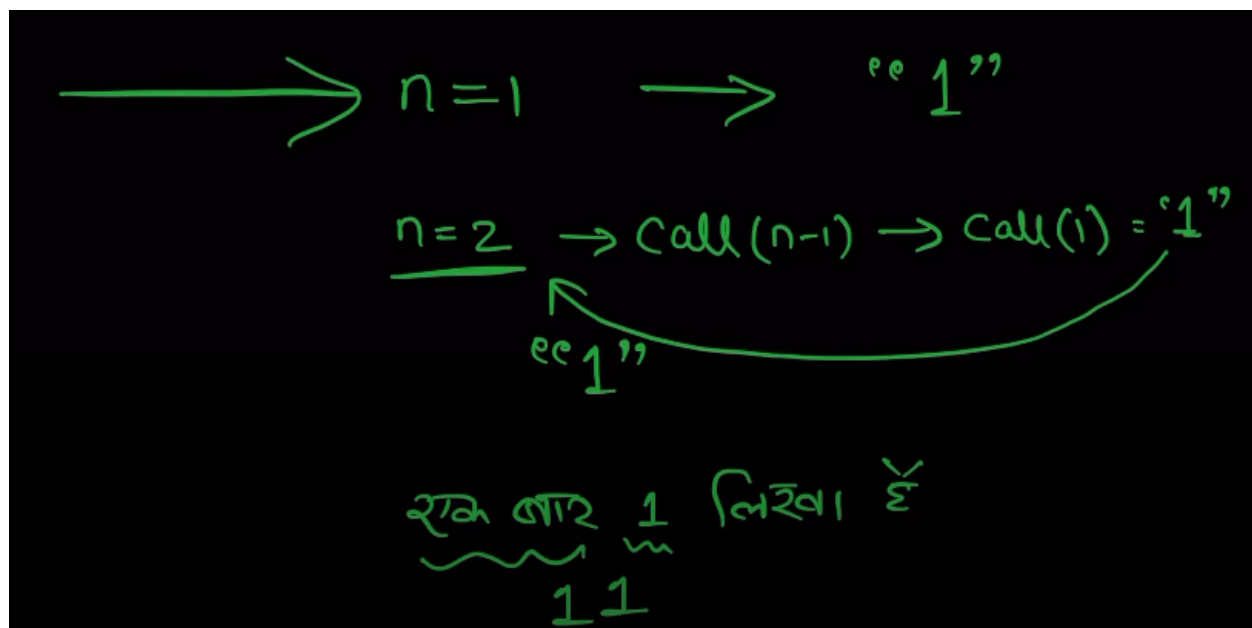 n=1 → “1”
n=2 → Call(n-1) → Call(1) = “1”
“1”
एक बार 1 लिखा है
11